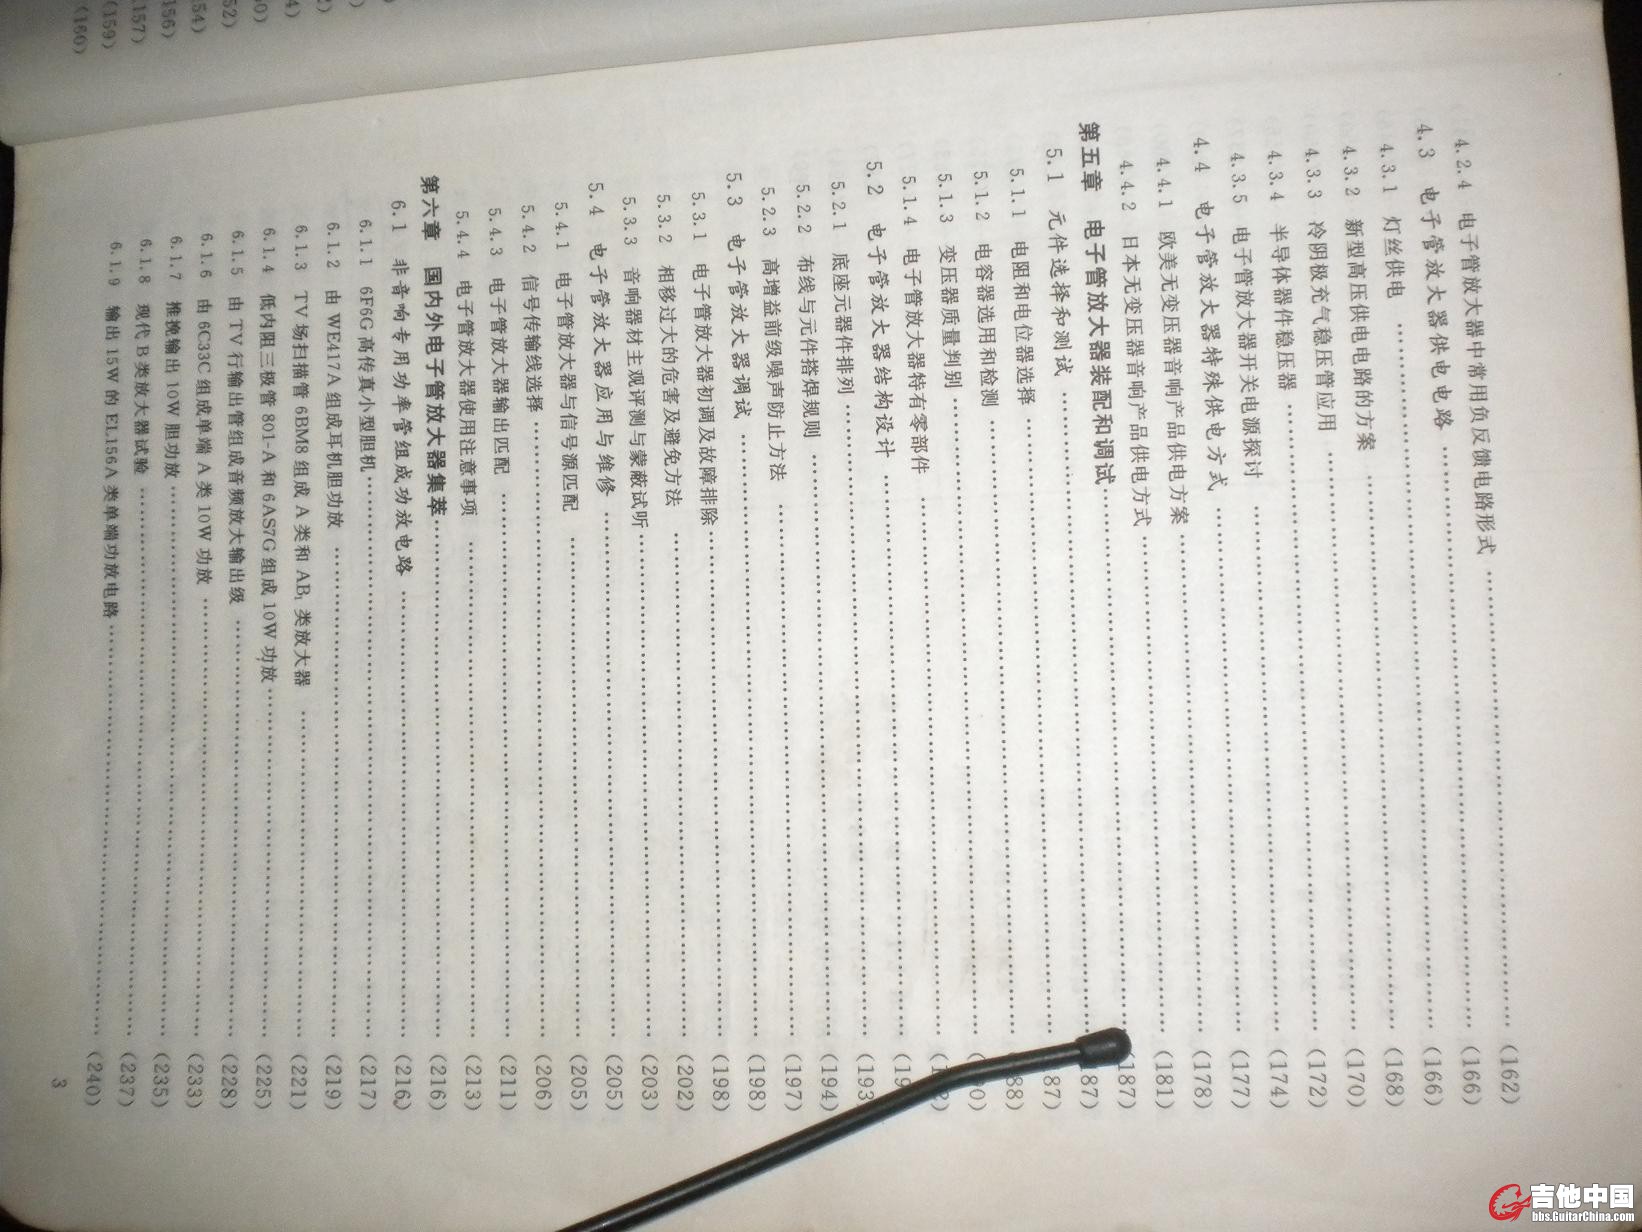 52)
54)
156)
157)
(159)
(160)
4.2.4 电子管放大器中常用负反馈电路形式 …… (162)
4.3 电子管放大器供电电路 …… (166)
4.3.1 灯丝供电 …… (166)
4.3.2 新型高压供电电路的方案 …… (168)
4.3.3 冷阴极充气稳压管应用 …… (170)
4.3.4 半导体器件稳压器 …… (172)
4.3.5 电子管放大器开关电源探讨 …… (174)
4.4 电子管放大器特殊供电方式 …… (177)
4.4.1 欧美无变压器音响产品供电方案 …… (178)
4.4.2 日本无变压器音响产品供电方式 …… (181)
第五章 电子管放大器装配和调试 …… 187)
5.1 元件选择和测试 …… 87)
5.1.1 电阻和电位器选择 …… 87)
5.1.2 电容器选用和检测 …… 88)
5.1.3 变压器质量判别 …… 0)
5.1.4 电子管放大器特有零部件 …… 2)
5.2 电子管放大器结构设计 …… (19
5.2.1 底座元器件排列 …… (193
5.2.2 布线与元件搭焊规则 …… (194)
5.2.3 高增益前级噪声防止方法 …… (197)
5.3 电子管放大器调试 …… (198)
5.3.1 电子管放大器初调及故障排除 …… (198)
5.3.2 相移过大的危害及避免方法 …… (202)
5.3.3 音响器材主观评测与蒙蔽试听 …… (203)
5.4 电子管放大器应用与维修 …… (205)
5.4.1 电子管放大器与信号源匹配 …… (205)
5.4.2 信号传输线选择 …… (206)
5.4.3 电子管放大器输出匹配 …… (211)
5.4.4 电子管放大器使用注意事项 …… (213)
第六章 国内外电子管放大器集萃 …… (216)
6.1 非音响专用功率管组成功放电路 …… (216)
6.1.1 6F6G高传真小型胆机 …… (217)
6.1.2 由WE417A组成耳机胆功放 …… (219)
6.1.3 TV场扫描管6BM8组成A类和AB₁类放大器 …… (221)
6.1.4 低内阻三极管801-A和6AS7G组成10W功放 …… (225)
6.1.5 由TV行输出管组成音频放大输出级 …… (228)
6.1.6 由6C33C组成单端A类10W功放 …… (233)
6.1.7 推挽输出10W胆功放 …… (235)
6.1.8 现代B类放大器试验 …… (237)
6.1.9 输出15W的EL156A类单端功放电路 …… (240)
3
吉他中国
bbs.GuitarChina.com